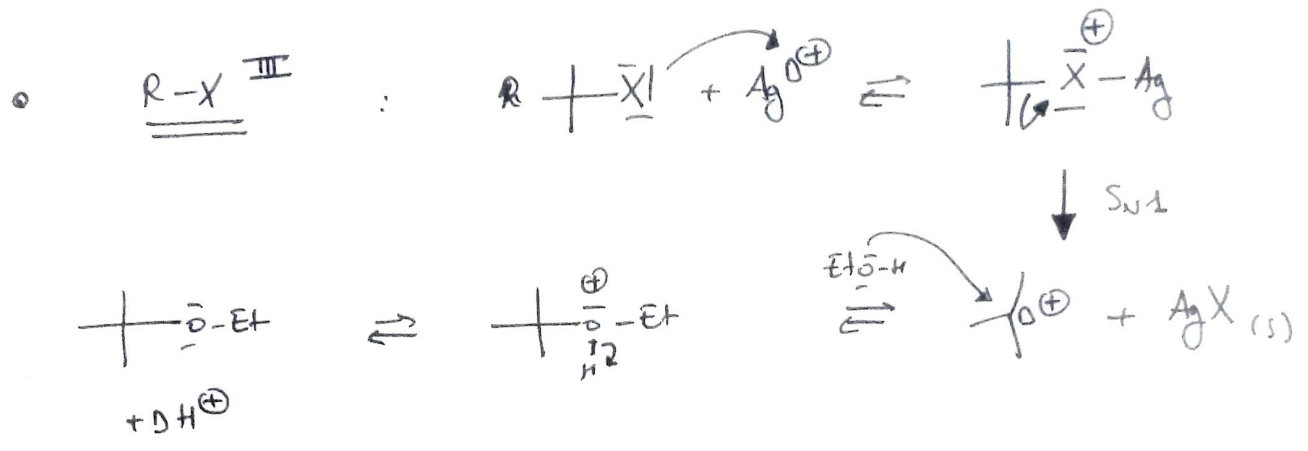 • R-X III : R X| + Ag □⊕ ⇌ X⊕-Ag
↓ SN1
EtO-H
O-Et ⇌ O⊕-Et ⇌ □⊕ + AgX (s)
H
+ □H⊕